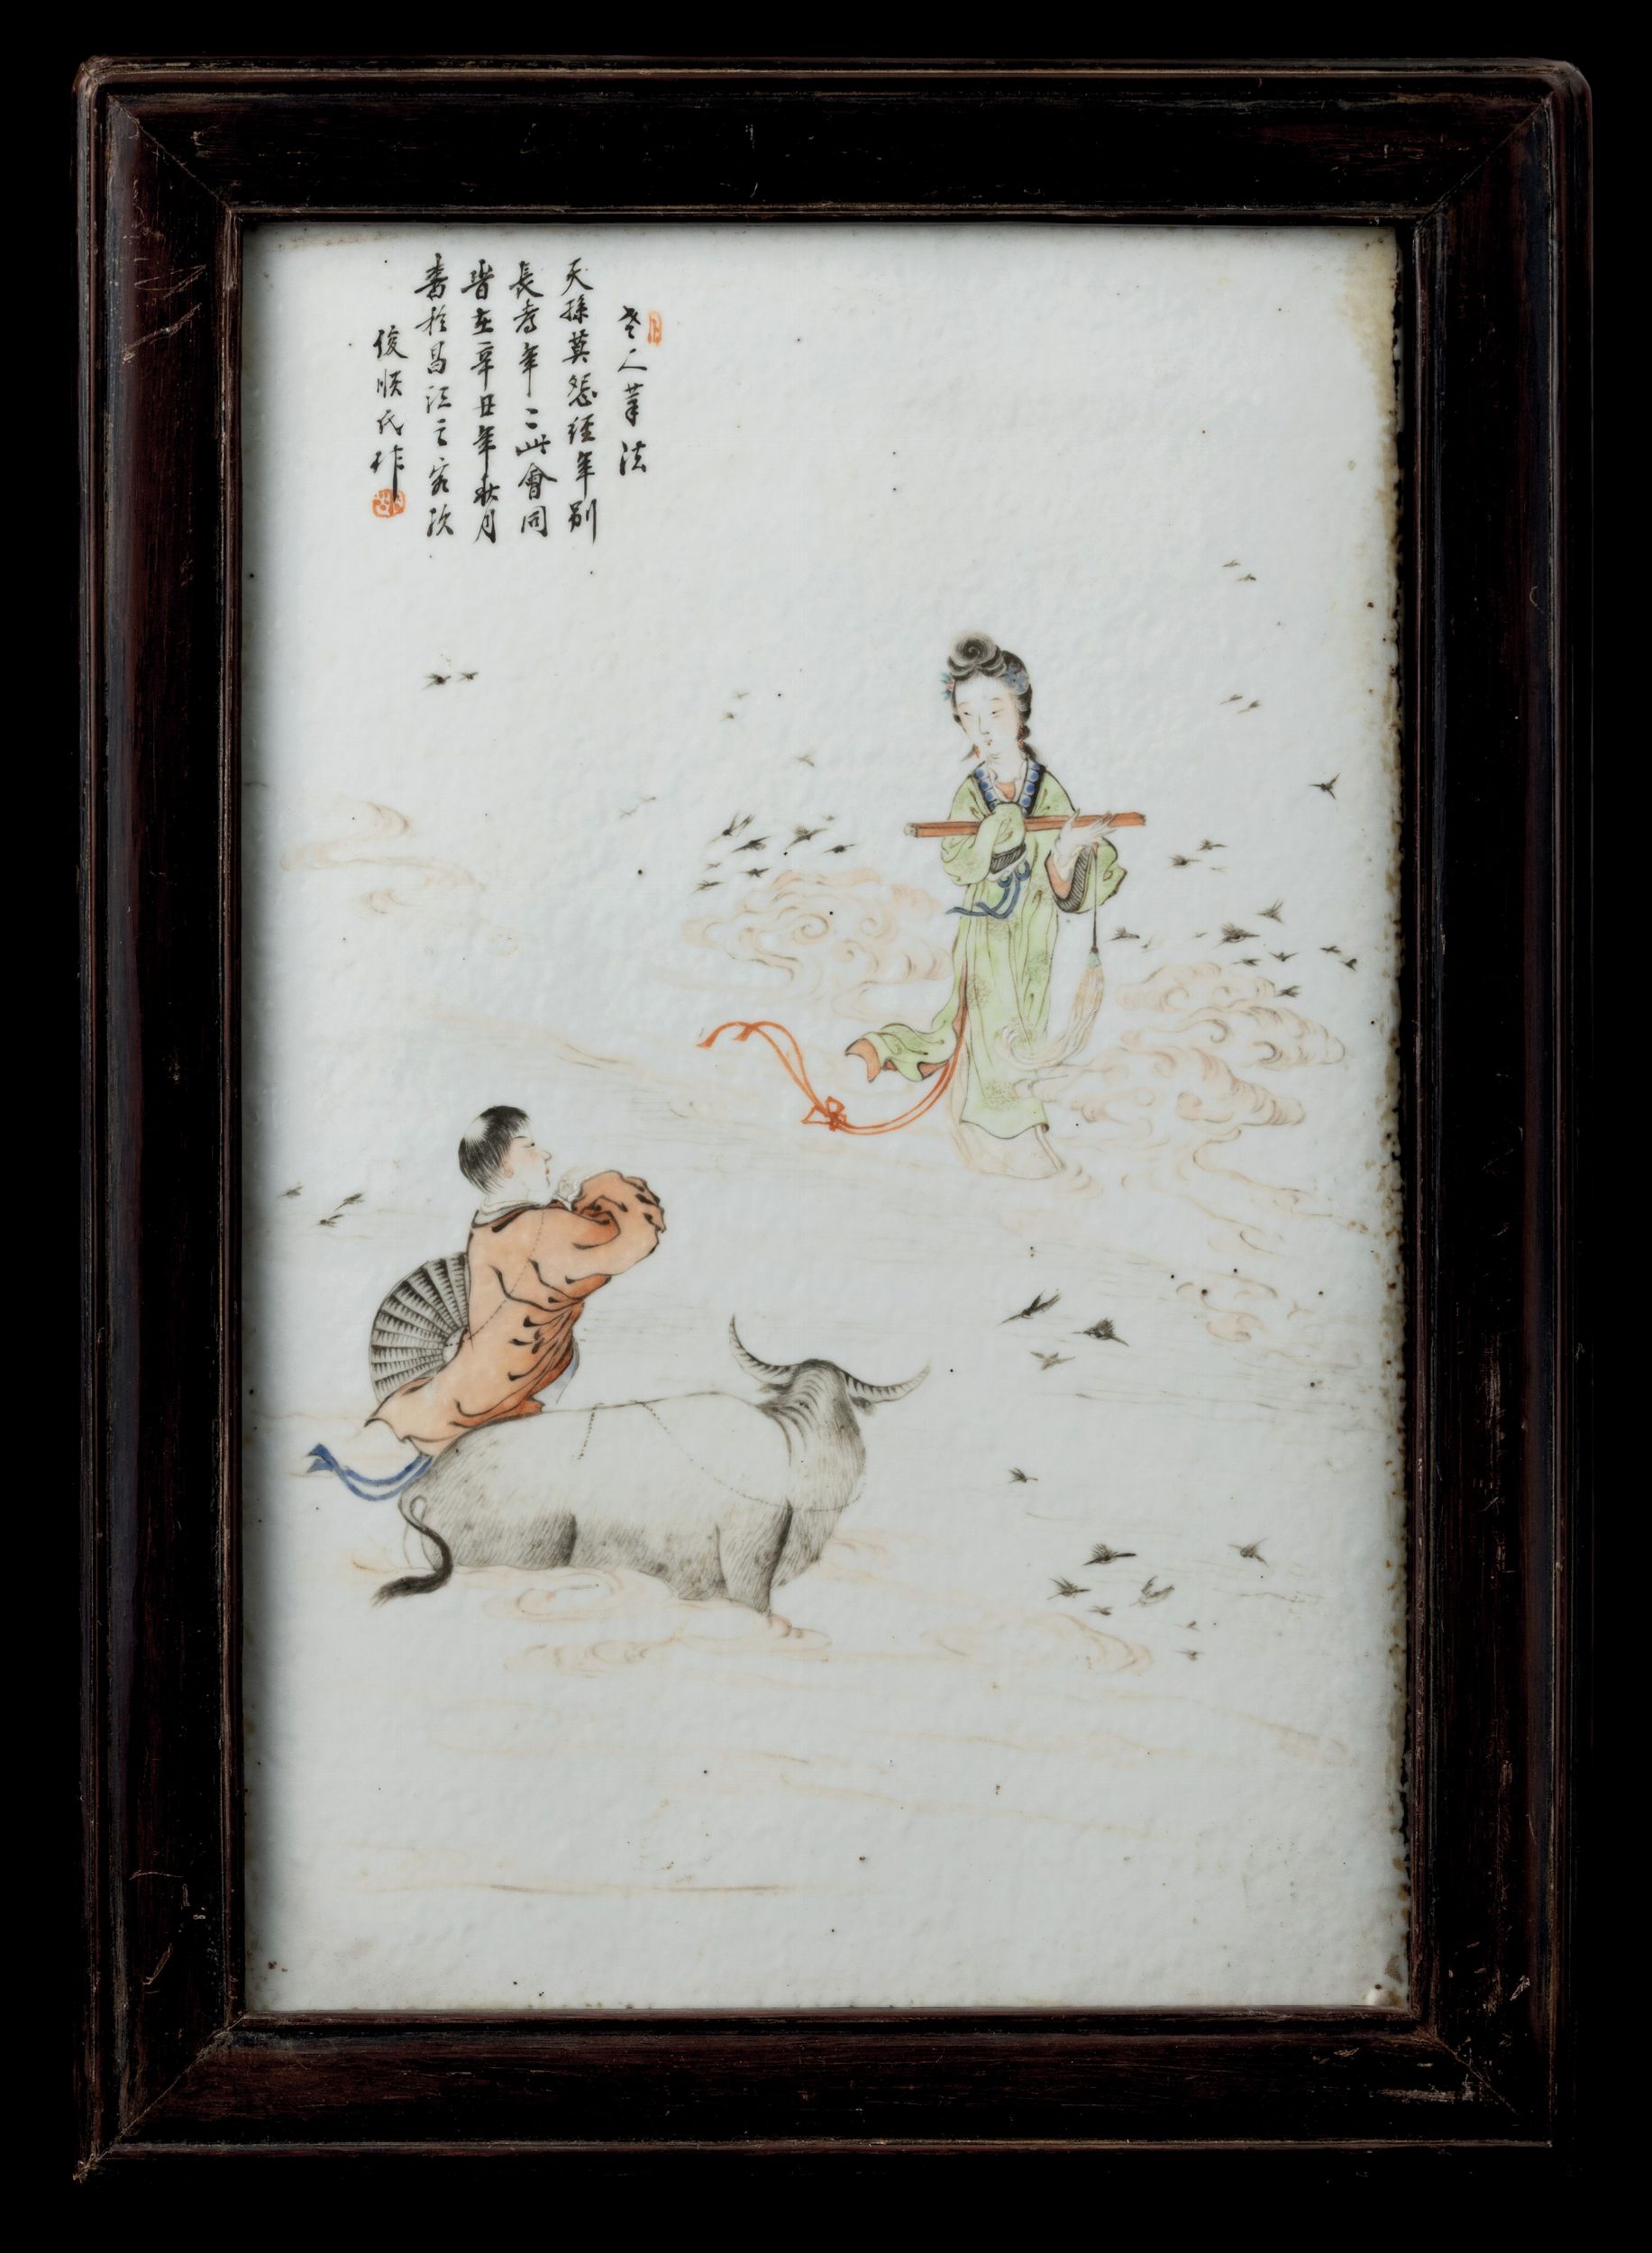 老人筆法
天孫莫怨經年别
長叅年〻此會同
岢在辛丑年秋月
書於昌江之客次
俊順氏作